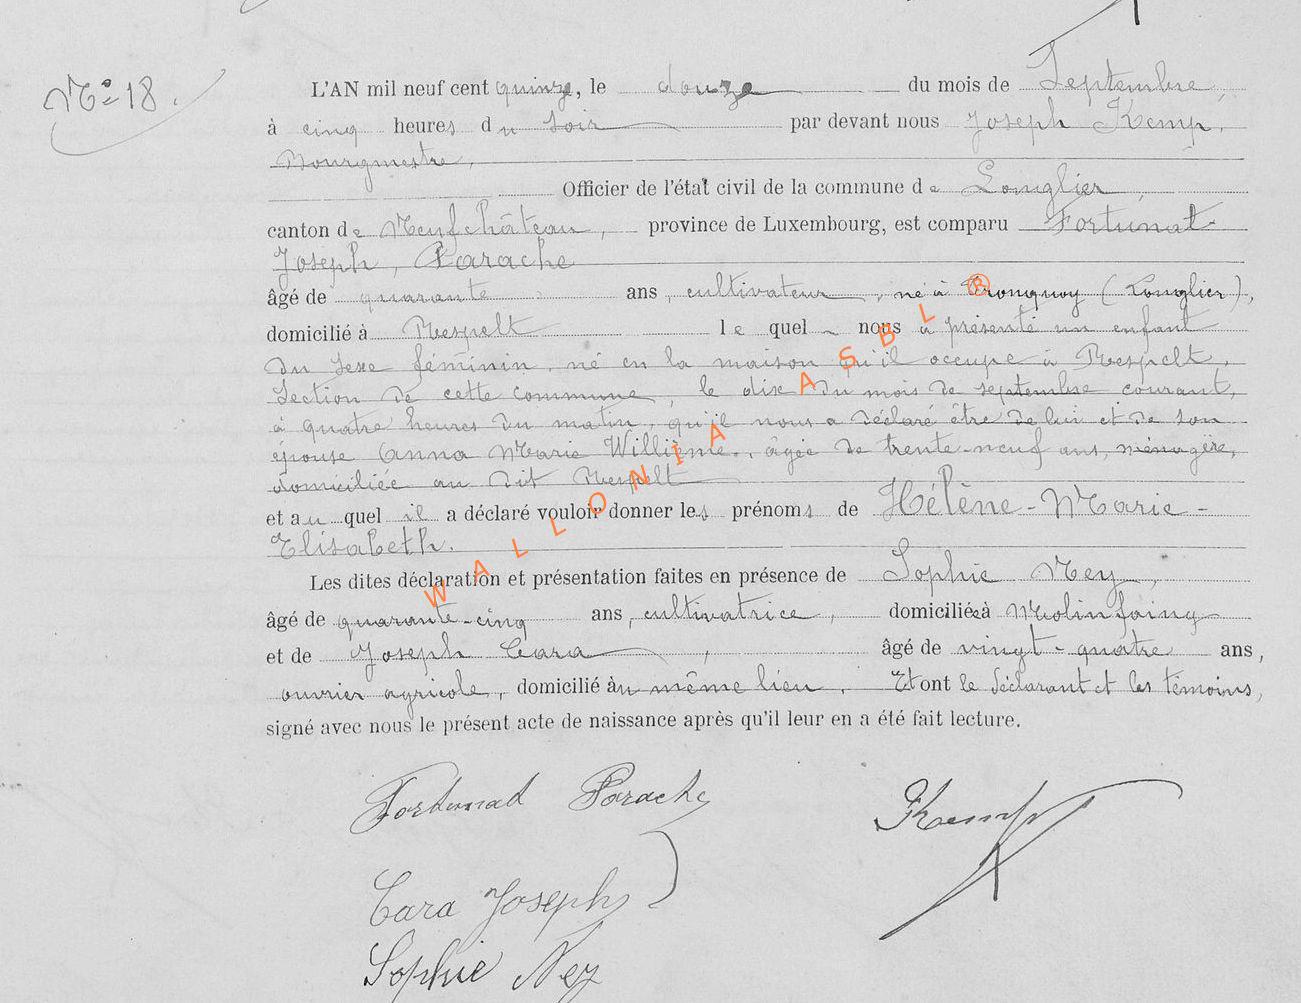 N° 18.
L'AN mil neuf cent quinze, le douze du mois de Septembre,
à cinq heures du soir par devant nous Joseph Kemp,
Bourgmestre,
Officier de l'état civil de la commune de Longlier,
canton de Neufchâteau, province de Luxembourg, est comparu Fortunat-
Joseph, Parache
âgé de quarante ans, cultivateur, né à Tronquoy (Longlier),
domicilié à Respelt lequel nous a présenté un enfant
du sexe féminin, né en la maison qu'il occupe à Respelt,
section de cette commune, le dix du mois de septembre courant,
à quatre heures du matin, qu'il nous a déclaré être de lui et de son
épouse Anna Marie Willième, âgée de trente-neuf ans, ménagère,
domiciliée au dit Respelt
et auquel il a déclaré vouloir donner les prénoms de Hélène-Marie-
Elisabeth.
Les dites déclaration et présentation faites en présence de Sophie Ney,
âgé de quarante-cinq ans, cultivatrice, domiciliée à Molinfaing
et de Joseph Cara, âgé de vingt-quatre ans,
ouvrier agricole, domicilié au même lieu. Et ont le déclarant et les témoins,
signé avec nous le présent acte de naissance après qu'il leur en a été fait lecture.
Fortunat Parache
Kemp
Cara Joseph
Sophie Ney
WALLONIA ASBL ®